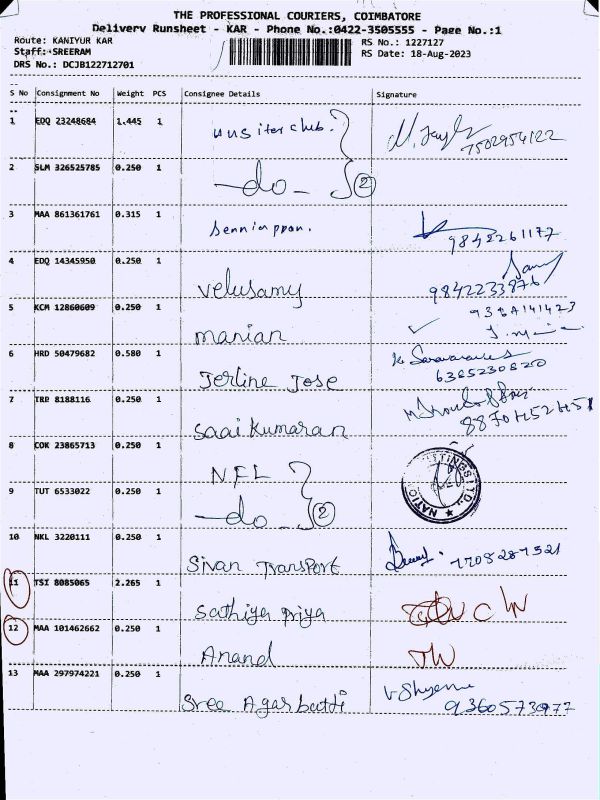 THE PROFESSIONAL COURIERS, COIMBATORE
Delivery Runsheet - KAR - Phone No.:0422-3505555 - Page No.:1
Route: KANIYUR KAR
RS No.: 1227127
Staff: SREERAM
RS Date: 18-Aug-2023
DRS No.: DCJB122712701
S No Consignment No Weight PCS Consignee Details Signature
1 EDQ 23248684 1.445 1
7502954122
2 SLM 326525785 0.250 1 -do- 2
3 MAA 861361761 0.315 1
9842261177
4 EDQ 14345950 0.250 1 Velusamy
9842233876
5 KCM 12860609 0.250 1 manian
6 HRD 50479682 0.580 1 Jerline Jose
6385230820
7 TRP 8188116 0.250 1 Saai Kumaran
8 COK 23865713 0.250 1 NFL
9 TUT 6533022 0.250 1 -do- 2
10 NKL 3220111 0.250 1 Sivan Transport
11 TSI 8085065 2.265 1 Sathiya priya
12 MAA 101462662 0.250 1 Anand
13 MAA 297974221 0.250 1 Sree Agarbatti
9360573977